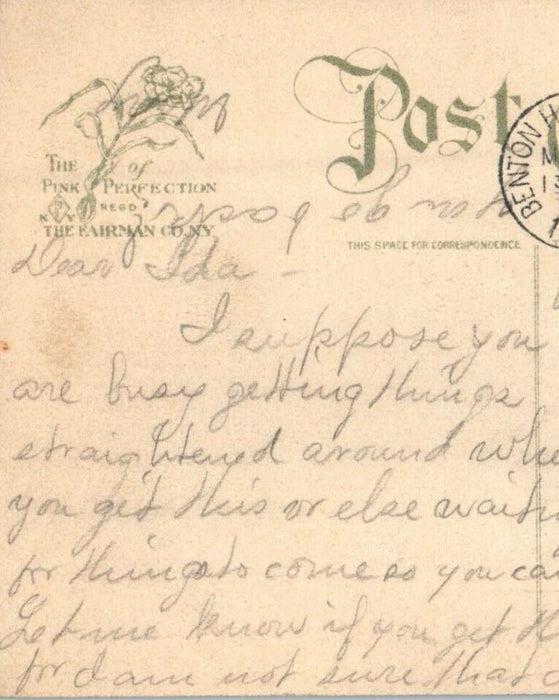 Post
THE
of
PINK PERFECTION
REGD
N Y
THE FAIRMAN CO. N.Y.
BENTON H
M
13
THIS SPACE FOR CORRESPONDENCE
Dear Ida -
I suppose you
are busy getting things
straightened around whe
you get this or else waitin
for things to come so you can
Let me know if you get th
for I am not sure that